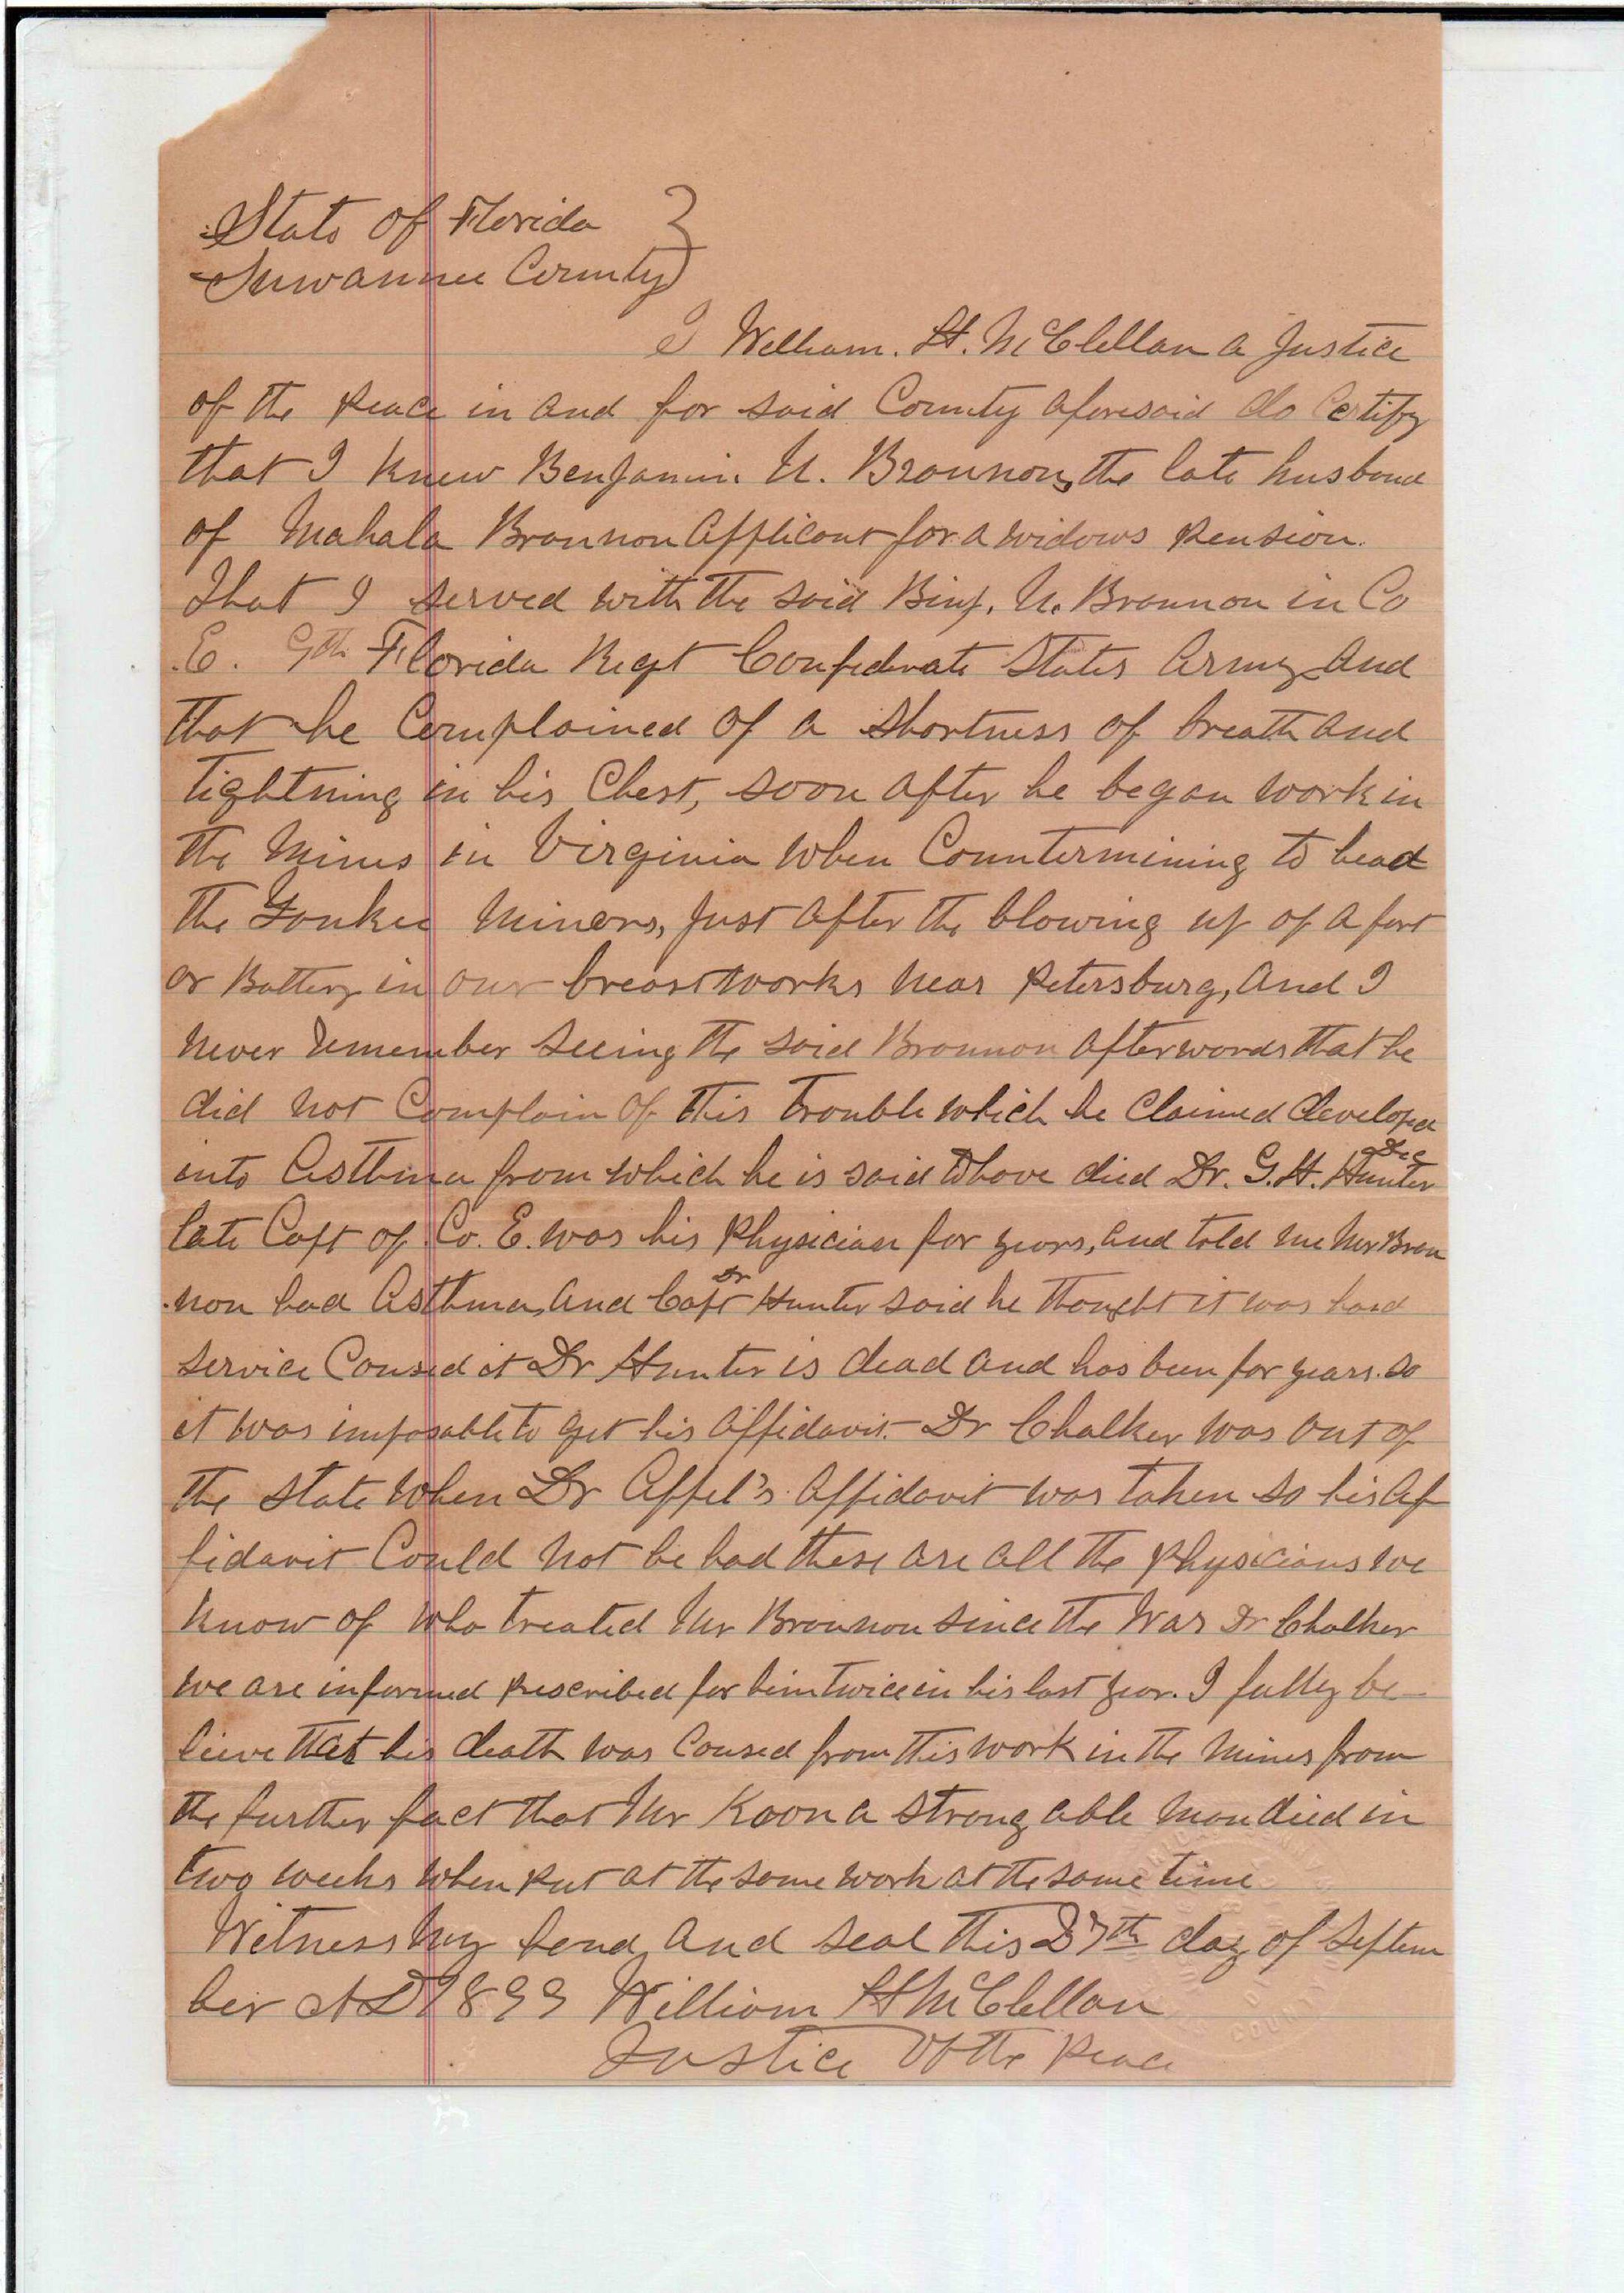 State of Florida }
Suwannee County }
I William. H. McClellan a Justice
of the Peace in and for said County aforesaid do Certify
that I Knew Benjamin. U. Brannon, the late husband
of Mahala Brannon Applicant for a widows Pension.
That I served with the said Binj. U. Brannon in Co
E. 9th Florida Regt Confederate States Army and
that he Complained of a Shortness of breath and
tightning in his Chest, soon after he began work in
the Mines in Virginia When Countermining to head
the Yankee Miners, Just after the blowing up of a fort
or Battery in our breastworks near Petersburg, And I
never remember seeing the said Brannon afterwards that he
did not Complain of this trouble which he Claimed developed
into Asthma from which he is said to have died Dr. G. H. Hunter Dec
late Capt of Co. E. was his Physician for years, and told me Mr Bran
non had Asthma, and Capt Dr Hunter said he thought it was hard
service Caused it Dr Hunter is dead and has been for years. so
it was imposable to get his affidavit. Dr Chalker was out of
the state when Dr Appel's affidavit was taken so his Af
fidavit Could not be had these are all the Physicians we
know of who treated Mr Brannon since the War Dr Chalker
we are informed prescribed for him twice in his last year. I fully be
lieve that his death was Caused from this work in the Mines from
the further fact that Mr Koon a strong able man died in
two weeks when put at the same work at the same time
Witness my hand and seal this 27th day of Septem
ber AD 1899 William H McClellan
Justice of the Peace